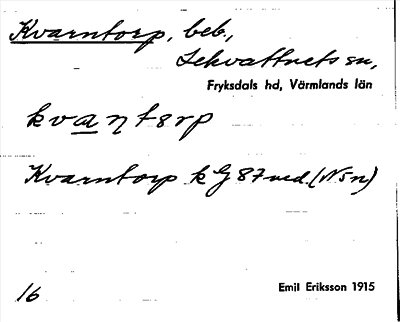 Kvarntorp, beb.,
Lekvattnets sn,
Fryksdals hd, Värmlands län
kvaƞtɵrp
Kvarntorp k G 87 ned. (NSn)
16 Emil Eriksson 1915